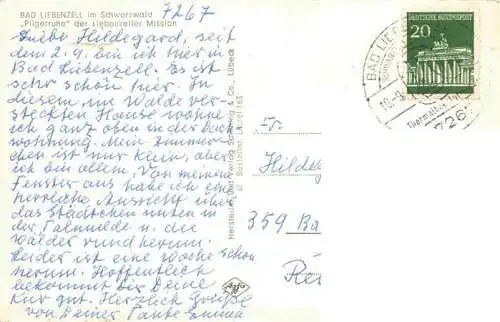 BAD LIEBENZELL im Schwarzwald
„Pilgerruhe" der Liebenzeller Mission
7267
Liebe Hildegard, seit
dem 2.9. bin ich hier in
Bad Liebenzell. Es ist
sehr schön hier. In
diesem, im Walde ver-
steckten Hause wohne
ich ganz oben in der Dach-
wohnung. Mein Zimmer-
chen ist nur klein, aber
ich bin allein. Von meinem
Fenster aus habe ich eine
herrliche Aussicht über
das Städtchen unten in
der Talmulde u. die
Wälder rund herum.
Leider ist eine Woche schon
herum. Hoffentlich
bekommt Dir Deine
Kur gut. Herzlich Grüße
von Deiner Tante Emma
Herstellung und Verlag Schöning & Co., Lübeck
Bestellnr.
DEUTSCHE BUNDESPOST
20
BAD LIEBE
10.-9.
726
Fr.
Hilde
359 Ba